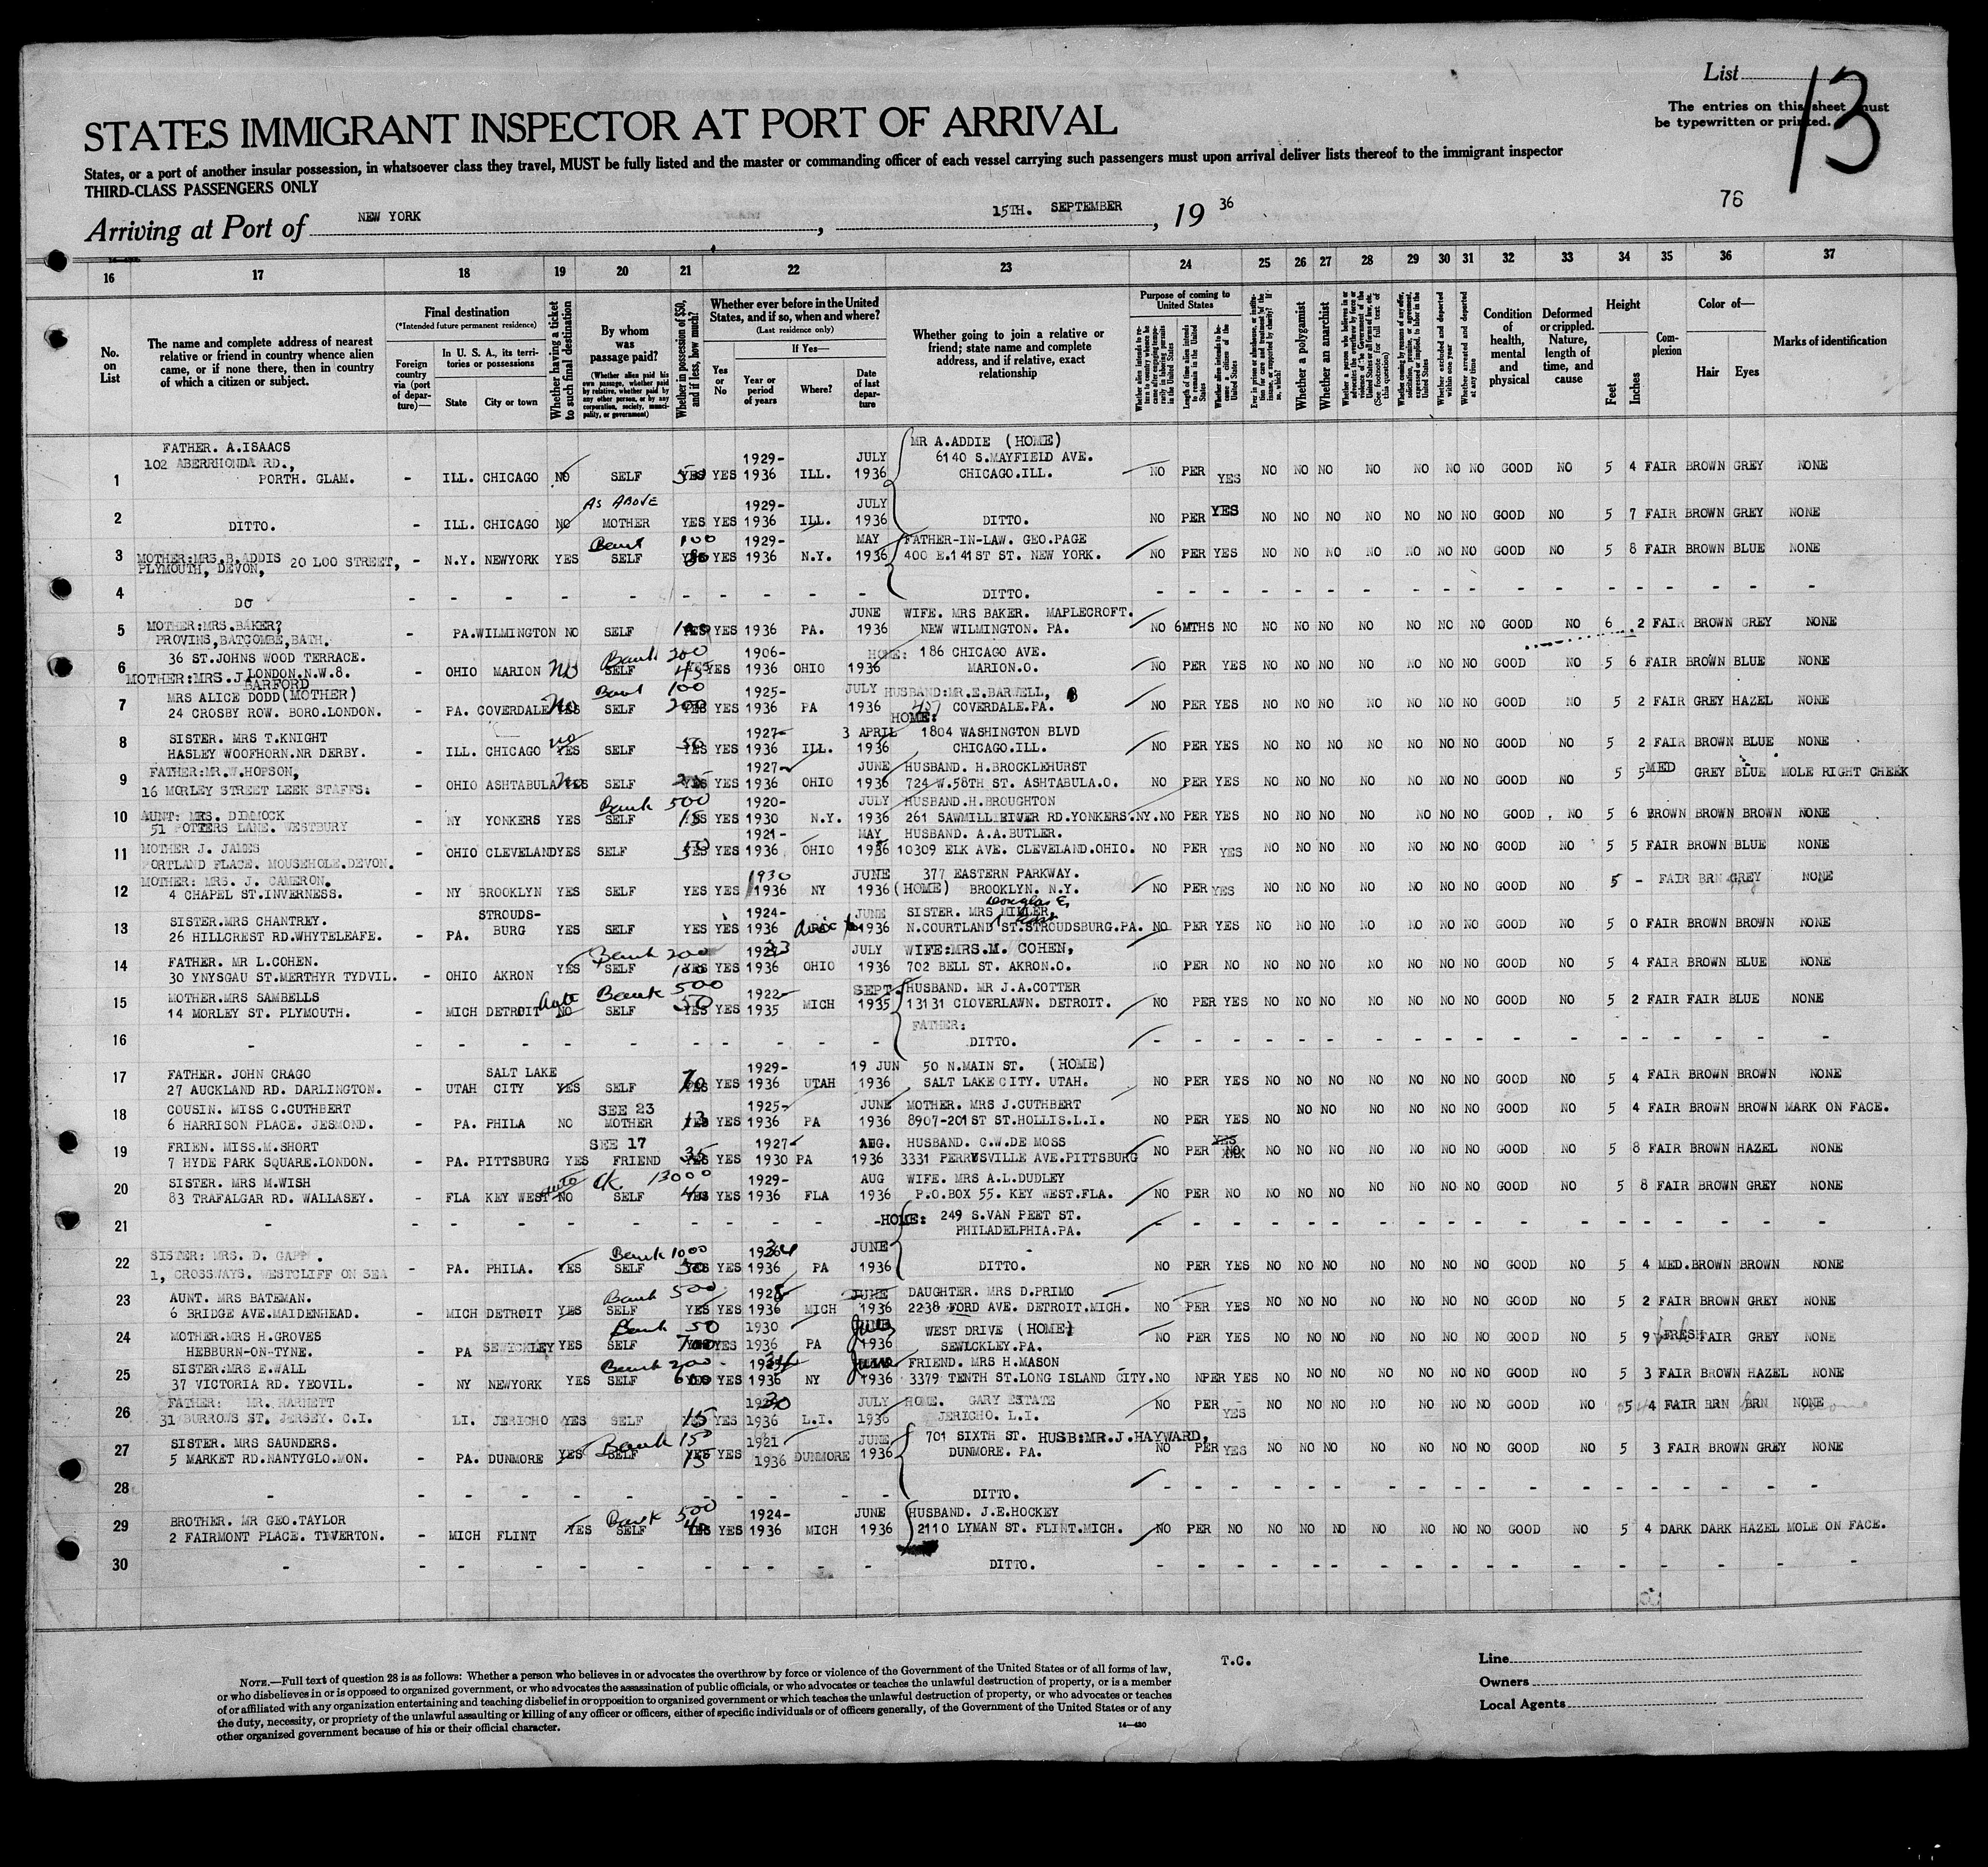 List
13
The entries on this sheet must
be typewritten or printed.
STATES IMMIGRANT INSPECTOR AT PORT OF ARRIVAL
States, or a port of another insular possession, in whatsoever class they travel, MUST be fully listed and the master or commanding officer of each vessel carrying such passengers must upon arrival deliver lists thereof to the immigrant inspector
THIRD-CLASS PASSENGERS ONLY
76
Arriving at Port of NEW YORK, 15TH. SEPTEMBER, 19 36
16 17 18 19 20 21 22 23 24 25 26 27 28 29 30 31 32 33 34 35 36 37
No. on List
The name and complete address of nearest relative or friend in country whence alien came, or if none there, then in country of which a citizen or subject.
Final destination
(*Intended future permanent residence)
Foreign country via (port of departure)—
In U. S. A., its territories or possessions
State City or town
Whether having a ticket to such final destination
By whom was passage paid?
(Whether alien paid his own passage, whether paid by relative, whether paid by any other person, or by any corporation, society, municipality, or government)
Whether in possession of $50, and if less, how much?
Whether ever before in the United States, and if so, when and where?
(Last residence only)
Yes or No
If Yes—
Year or period of years
Where?
Date of last departure
Whether going to join a relative or friend; state name and complete address, and if relative, exact relationship
Purpose of coming to United States
Length of time alien intends to remain in the United States
Whether alien intends to become a citizen of the United States
Whether a polygamist
Whether an anarchist
(See footnote for full text of this question)
Whether excluded and deported within one year
Whether arrested and deported at any time
Condition of health, mental and physical
Deformed or crippled. Nature, length of time, and cause
Height
Feet Inches
Complexion
Color of—
Hair Eyes
Marks of identification
1 FATHER. A.ISAACS 102 ABERRHONDA RD., PORTH. GLAM. - ILL. CHICAGO NO SELF 50 YES YES 1929-1936 ILL. JULY 1936 MR A.ADDIE (HOME) 6140 S.MAYFIELD AVE. CHICAGO.ILL. NO PER YES NO NO NO NO NO NO NO GOOD NO 5 4 FAIR BROWN GREY NONE
2 DITTO. - ILL. CHICAGO NO AS ABOVE MOTHER YES YES 1929-1936 ILL. JULY 1936 DITTO. NO PER YES NO NO NO NO NO NO NO GOOD NO 5 7 FAIR BROWN GREY NONE
3 MOTHER:MRS.B.ADDIS 20 LOO STREET, PLYMOUTH, DEVON, - N.Y. NEWYORK YES Bank 100 SELF YES YES 1929-1936 N.Y. MAY 1936 FATHER-IN-LAW. GEO.PAGE 400 E.141ST ST. NEW YORK. NO PER YES NO NO NO NO NO NO NO GOOD NO 5 8 FAIR BROWN BLUE NONE
4 DO - - - - - - - - - DITTO. - - - - - - - - - - - - - - - - -
5 MOTHER:MRS.BAKER? PROVINS,BATCOMBE,BATH. - PA. WILMINGTON NO SELF 100 YES YES 1936 PA. JUNE 1936 WIFE. MRS BAKER. MAPLECROFT. NEW WILMINGTON. PA. NO 6MTHS NO NO NO NO NO NO NO NO GOOD NO 6 2 FAIR BROWN GREY NONE
6 36 ST.JOHNS WOOD TERRACE. LONDON.N.W.8. MOTHER:MRS.J. BARFORD - OHIO MARION NO Bank 200 SELF 45 YES YES 1906-1936 OHIO 1936 HOME: 186 CHICAGO AVE. MARION.O. NO PER YES NO NO NO NO NO NO NO GOOD NO 5 6 FAIR BROWN BLUE NONE
7 MRS ALICE DODD (MOTHER) 24 CROSBY ROW. BORO.LONDON. - PA. COVERDALE No YES Bank 100 SELF 200 YES YES 1925-1936 PA JULY 1936 HUSBAND:MR.E.BARWELL, 457 COVERDALE.PA. NO PER YES NO NO NO NO NO NO NO GOOD NO 5 2 FAIR GREY HAZEL NONE
8 SISTER. MRS T.KNIGHT HASLEY WOOFHORN.NR DERBY. - ILL. CHICAGO no YES SELF 50 YES YES 1927-1936 ILL. 3 APRIL 1936 HOME: 1804 WASHINGTON BLVD CHICAGO.ILL. NO PER YES NO NO NO NO NO NO NO GOOD NO 5 2 FAIR BROWN BLUE NONE
9 FATHER:MR.W.HOPSON, 16 MORLEY STREET LEEK STAFFS. - OHIO ASHTABULA No YES SELF 25 YES YES 1927-1936 OHIO JUNE 1936 HUSBAND. H.BROCKLEHURST 724 W.58TH ST. ASHTABULA.O. NO PER YES NO NO NO NO NO NO NO GOOD NO 5 5 MED GREY BLUE MOLE RIGHT CHEEK
10 AUNT: MRS. DIMMOCK 51 POTTERS LANE. WESTBURY - NY YONKERS YES Bank 500 SELF 15 YES YES 1920-1930 N.Y. JULY 1936 HUSBAND.H.BROUGHTON 261 SAWMILL RIVER RD.YONKERS.NY. NO PER YES NO NO NO NO NO NO NO GOOD NO 5 6 BROWN BROWN BROWN NONE
11 MOTHER J. JAMES PORTLAND PLACE. MOUSEHOLE.DEVON. - OHIO CLEVELAND YES SELF 50 YES YES 1921-1936 OHIO MAY 1936 HUSBAND. A.A.BUTLER. 10309 ELK AVE. CLEVELAND.OHIO. NO PER YES NO NO NO NO NO NO NO GOOD NO 5 5 FAIR BROWN BLUE NONE
12 MOTHER: MRS. J. CAMERON. 4 CHAPEL ST.INVERNESS. - NY BROOKLYN YES SELF YES YES 1930 1936 NY JUNE 1936 377 EASTERN PARKWAY. (HOME) BROOKLYN. N.Y. NO PER YES NO NO NO NO NO NO NO GOOD NO 5 - FAIR BRN GREY NONE
13 SISTER.MRS CHANTREY. 26 HILLCREST RD.WHYTELEAFE. - PA. STROUDS-BURG YES SELF YES YES 1924-1936 JUNE 1936 SISTER. MRS MILLER Douglas E, N.COURTLAND ST.STROUDSBURG.PA. NO PER YES NO NO NO NO NO NO NO GOOD NO 5 0 FAIR BROWN BROWN NONE
14 FATHER. MR L.COHEN. 30 YNYSGAU ST.MERTHYR TYDVIL. - OHIO AKRON YES Bank 200 SELF 100 YES YES 1923 1936 OHIO JULY 1936 WIFE:MRS.M. COHEN, 702 BELL ST. AKRON.O. NO PER NO NO NO NO NO NO NO NO GOOD NO 5 4 FAIR BROWN BLUE NONE
15 MOTHER.MRS SAMBELLS 14 MORLEY ST. PLYMOUTH. - MICH DETROIT auto NO Bank 500 SELF 50 YES YES 1922-1935 MICH SEPT. 1935 HUSBAND. MR J.A.COTTER 13131 CLOVERLAWN. DETROIT. NO PER YES NO NO NO NO NO NO NO GOOD NO 5 2 FAIR FAIR BLUE NONE
16 - - - - - - - - - - FATHER: DITTO. - - - - - - - - - - - - - - - - -
17 FATHER. JOHN CRAGO 27 AUCKLAND RD. DARLINGTON. - UTAH SALT LAKE CITY YES SELF 70 YES YES 1929-1936 UTAH 19 JUN 1936 50 N.MAIN ST. (HOME) SALT LAKE CITY. UTAH. NO PER YES NO NO NO NO NO NO NO GOOD NO 5 4 FAIR BROWN BROWN NONE
18 COUSIN. MISS C.CUTHBERT 6 HARRISON PLACE. JESMOND. - PA. PHILA NO SEE 23 MOTHER 13 YES YES 1925-1936 PA JUNE 1936 MOTHER. MRS J.CUTHBERT 8907-201ST ST.HOLLIS.L.I. NO PER YES NO NO NO NO NO NO NO GOOD NO 5 4 FAIR BROWN BROWN MARK ON FACE.
19 FRIEN. MISS.M.SHORT 7 HYDE PARK SQUARE.LONDON. - PA. PITTSBURG YES SEE 17 FRIEND 35 YES YES 1927-1930 PA AUG. 1936 HUSBAND. C.W.DE MOSS 3331 PERRYSVILLE AVE.PITTSBURG NO PER YES NO NO NO NO NO NO NO GOOD NO 5 8 FAIR BROWN HAZEL NONE
20 SISTER. MRS M.WISH 83 TRAFALGAR RD. WALLASEY. - FLA KEY WEST auto NO Ck. 13000 SELF YES YES 1929-1936 FLA AUG 1936 WIFE. MRS A.L.DUDLEY P.O.BOX 55. KEY WEST.FLA. NO PER NO NO NO NO NO NO NO NO GOOD NO 5 8 FAIR BROWN GREY NONE
21 - - - - - - - - - - HOME: 249 S.VAN PEET ST. PHILADELPHIA.PA. - - - - - - - - - - - - - - - - -
22 SISTER: MRS. D. GAPP. 1, CROSSWAYS. WESTCLIFF ON SEA - PA. PHILA. YES Bank 1000 SELF 50 YES YES 1936 PA JUNE 1936 - DITTO. NO PER YES NO NO NO NO NO NO NO GOOD NO 5 4 MED. BROWN BROWN NONE
23 AUNT. MRS BATEMAN. 6 BRIDGE AVE.MAIDENHEAD. - MICH DETROIT YES Bank 500 SELF YES YES 1928 1936 MICH JUNE 1936 DAUGHTER. MRS D.PRIMO 2238 FORD AVE. DETROIT.MICH. NO PER YES NO NO NO NO NO NO NO GOOD NO 5 2 FAIR BROWN GREY NONE
24 MOTHER.MRS H.GROVES HEBBURN-ON-TYNE. - PA SEWICKLEY YES Bank 50 SELF YES YES 1930 1936 PA 1936 WEST DRIVE (HOME) SEWICKLEY.PA. NO PER YES NO NO NO NO NO NO NO GOOD NO 5 9 FRESH FAIR GREY NONE
25 SISTER:MRS E.WALL 37 VICTORIA RD. YEOVIL. - NY NEWYORK YES Bank 200 SELF 600 YES YES 1936 NY 1936 FRIEND. MRS H.MASON 3379 TENTH ST.LONG ISLAND CITY. NO NPER YES NO NO NO NO NO NO NO GOOD NO 5 3 FAIR BROWN HAZEL NONE
26 FATHER: MR. HARNETT 31 BURROWS ST. JERSEY. C.I. LI. JERICHO YES SELF 15 YES YES 1930 1936 L.I. JULY 1936 HOME. GARY ESTATE JERICHO. L.I. NO PER YES NO NO NO NO NO NO NO GOOD NO 5 4 FAIR BRN BRN NONE
27 SISTER. MRS SAUNDERS. 5 MARKET RD.NANTYGLO.MON. - PA. DUNMORE YES Bank 150 SELF 15 YES YES 1921 1936 DUNMORE JUNE 1936 701 SIXTH ST. HUSB:MR.J.HAYWARD, DUNMORE. PA. NO PER YES NO NO NO NO NO NO NO GOOD NO 5 3 FAIR BROWN GREY NONE
28 - - - - - - - - - - DITTO. - - - - - - - - - - - - - - - - -
29 BROTHER. MR GEO.TAYLOR 2 FAIRMONT PLACE. TIVERTON. - MICH FLINT YES Bank 500 SELF YES YES 1924-1936 MICH JUNE 1936 HUSBAND. J.E.HOCKEY 2110 LYMAN ST. FLINT.MICH. NO PER NO NO NO NO NO NO NO NO GOOD NO 5 4 DARK DARK HAZEL MOLE ON FACE.
30 - - - - - - - - - - DITTO. - - - - - - - - - - - - - - - - -
T.C.
NOTE.—Full text of question 28 is as follows: Whether a person who believes in or advocates the overthrow by force or violence of the Government of the United States or of all forms of law,
or who disbelieves in or is opposed to organized government, or who advocates the assassination of public officials, or who advocates or teaches the unlawful destruction of property, or is a member
of or affiliated with any organization entertaining and teaching disbelief in or opposition to organized government or which teaches the unlawful destruction of property, or who advocates or teaches
the duty, necessity, or propriety of the unlawful assaulting or killing of any officer or officers, either of specific individuals or of officers generally, of the Government of the United States or of any
other organized government because of his or their official character.
14—420
Line
Owners
Local Agents